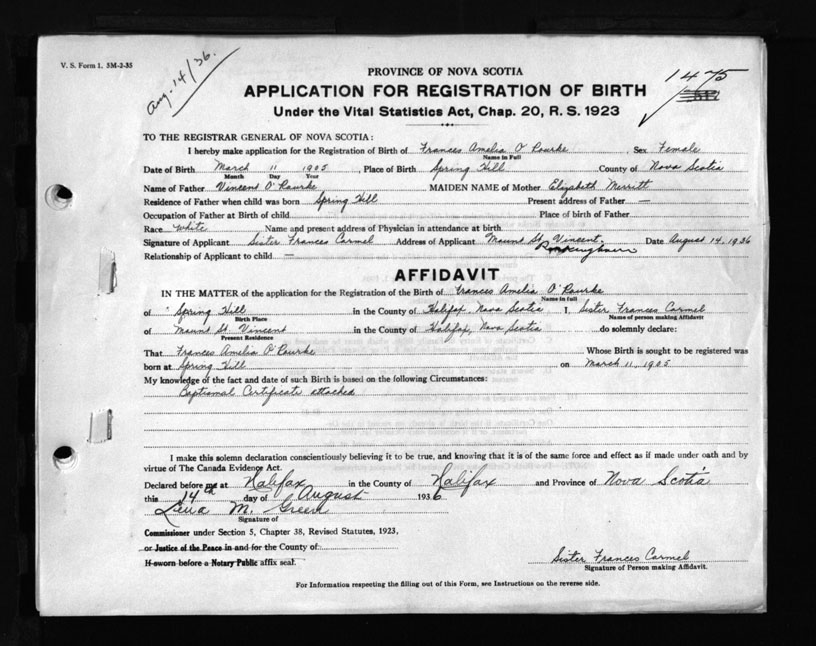 V. S. Form 1. 5M-2-35
Aug. 14/36.
PROVINCE OF NOVA SCOTIA
1475
APPLICATION FOR REGISTRATION OF BIRTH
Under the Vital Statistics Act, Chap. 20, R. S. 1923
TO THE REGISTRAR GENERAL OF NOVA SCOTIA:
I hereby make application for the Registration of Birth of Frances Amelia O'Rourke Sex Female
Name in Full
Date of Birth March 11 1905, Place of Birth Spring Hill County of Nova Scotia
Month Day Year
Name of Father Vincent O'Rourke MAIDEN NAME of Mother Elizabeth Merritt
Residence of Father when child was born Spring Hill Present address of Father —
Occupation of Father at Birth of child Place of birth of Father
Race White Name and present address of Physician in attendance at birth
Signature of Applicant Sister Frances Carmel Address of Applicant Mount St. Vincent, Date August 14, 1936
Rockingham
Relationship of Applicant to child —
AFFIDAVIT
IN THE MATTER of the application for the Registration of the Birth of Frances Amelia O'Rourke
Name in full
of Spring Hill in the County of Halifax, Nova Scotia I, Sister Frances Carmel
Birth Place Name of person making Affidavit
of Mount St. Vincent in the County of Halifax, Nova Scotia do solemnly declare:
Present Residence
That Frances Amelia O'Rourke Whose Birth is sought to be registered was
born at Spring Hill on March 11, 1905
My knowledge of the fact and date of such Birth is based on the following Circumstances:
Baptismal Certificate attached
I make this solemn declaration conscientiously believing it to be true, and knowing that it is of the same force and effect as if made under oath and by
virtue of The Canada Evidence Act.
Declared before me at Halifax in the County of Halifax and Province of Nova Scotia
this 14th day of August 1936
Lena M. Green
Signature of
Commissioner under Section 5, Chapter 38, Revised Statutes, 1923,
or Justice of the Peace in and for the County of
If sworn before a Notary Public affix seal.
Sister Frances Carmel
Signature of Person making Affidavit.
For Information respecting the filling out of this Form, see Instructions on the reverse side.